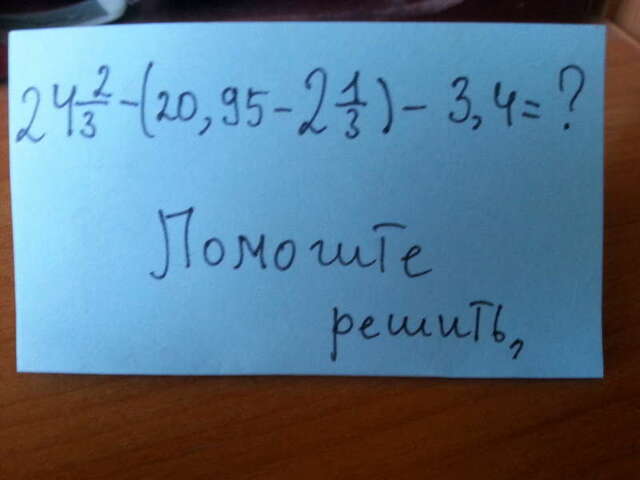 24 2/3 - (20,95 - 2 1/3) - 3,4 = ?
Помогите
решить,